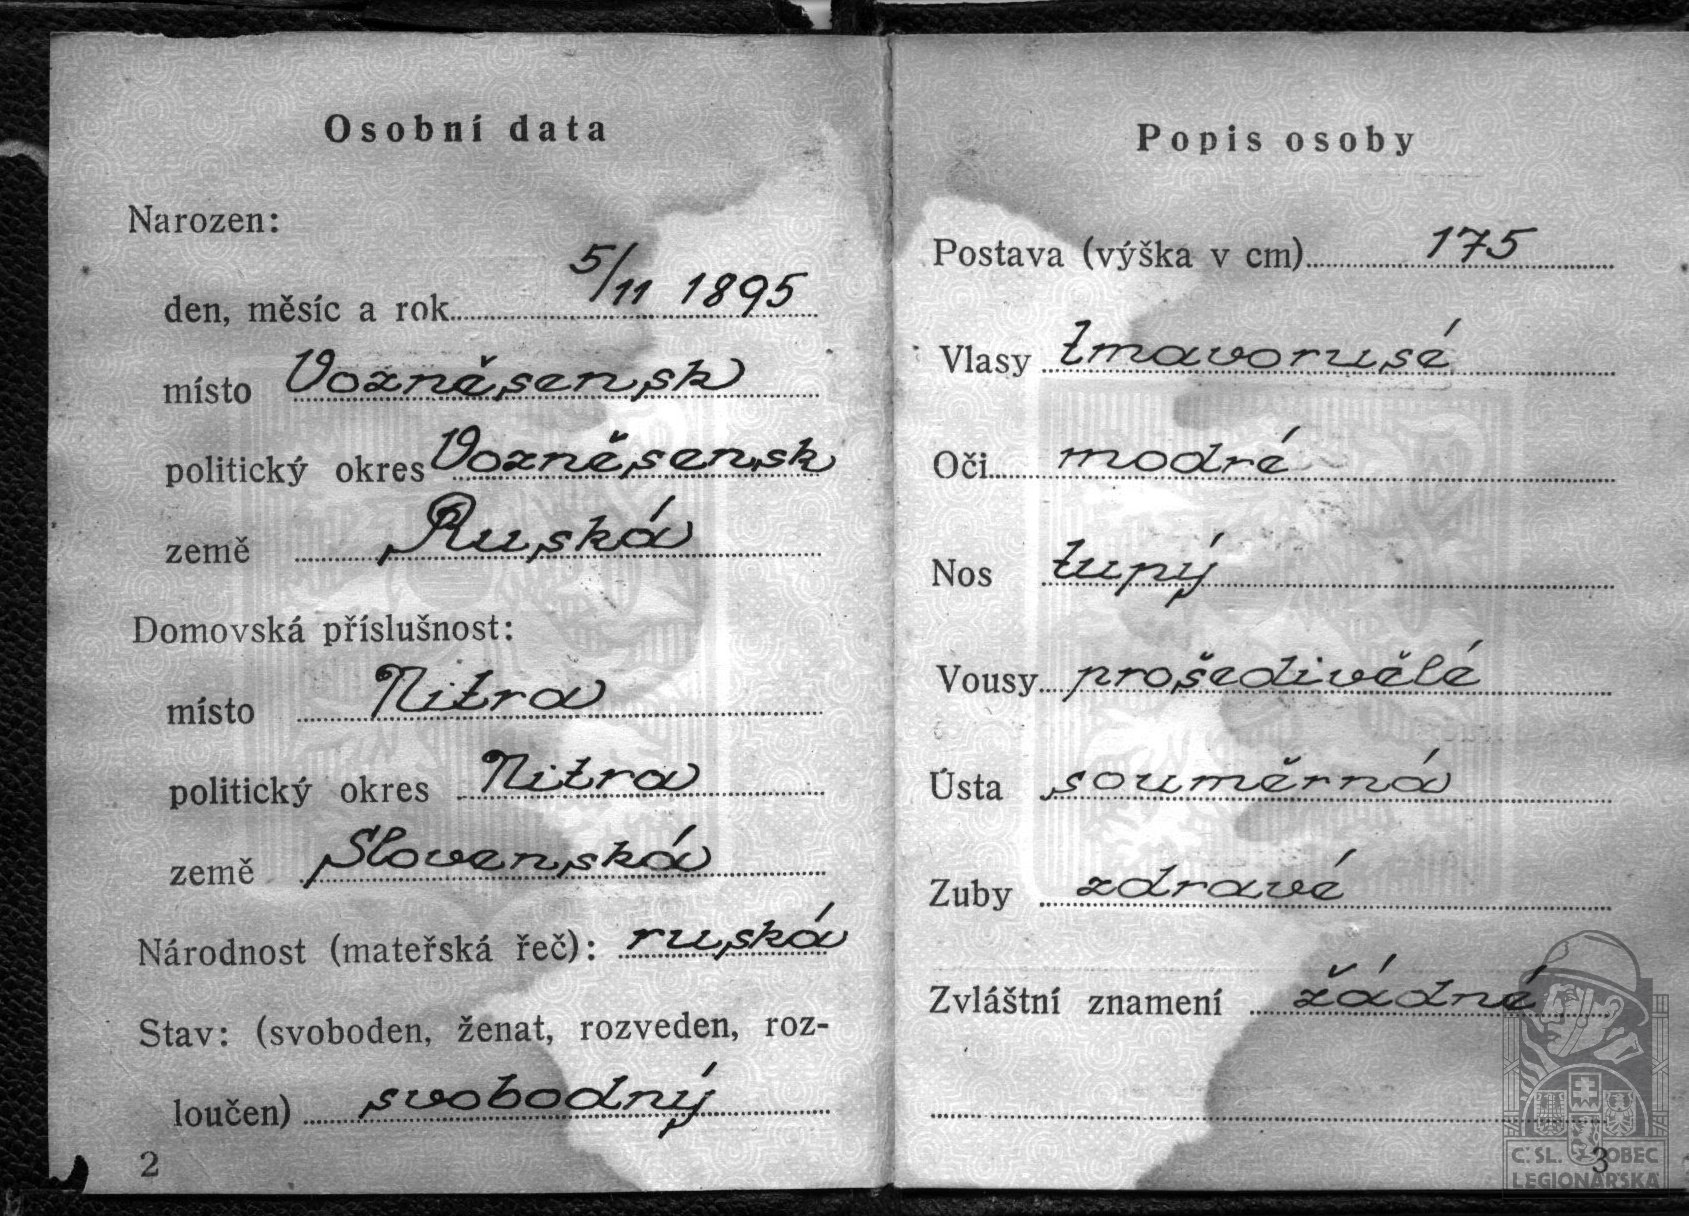 Osobní data
Narozen:
den, měsíc a rok 5/11 1895
místo Vozněsensk
politický okres Vozněsensk
země Ruská
Domovská příslušnost:
místo Nitra
politický okres Nitra
země Slovenská
Národnost (mateřská řeč): ruská
Stav: (svoboden, ženat, rozveden, roz-
loučen) svobodný
2
Popis osoby
Postava (výška v cm) 175
Vlasy tmavorusé
Oči modré
Nos tupý
Vousy prošedivělé
Ústa souměrná
Zuby zdravé
Zvláštní znamení žádné
3
Č. SL. OBEC
LEGIONÁŘSKÁ